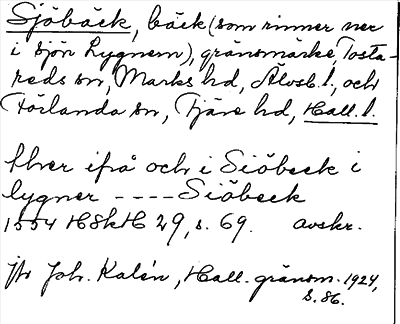 Sjöbäck, bäck (som rinner ner
i sjön Lygnern), gränsmärke, Tosta-
reds sn, Marks hd, Älvsb. l., och
Förlanda sn, Fjäre hd, Hall. l.
ifrå och i Siöbeck i
lygner ---- Siöbeck
1554 HSkH 29, s. 69. avskr.
Jfr Joh. Kalén, Hall. gränsm. 1924,
s. 86.